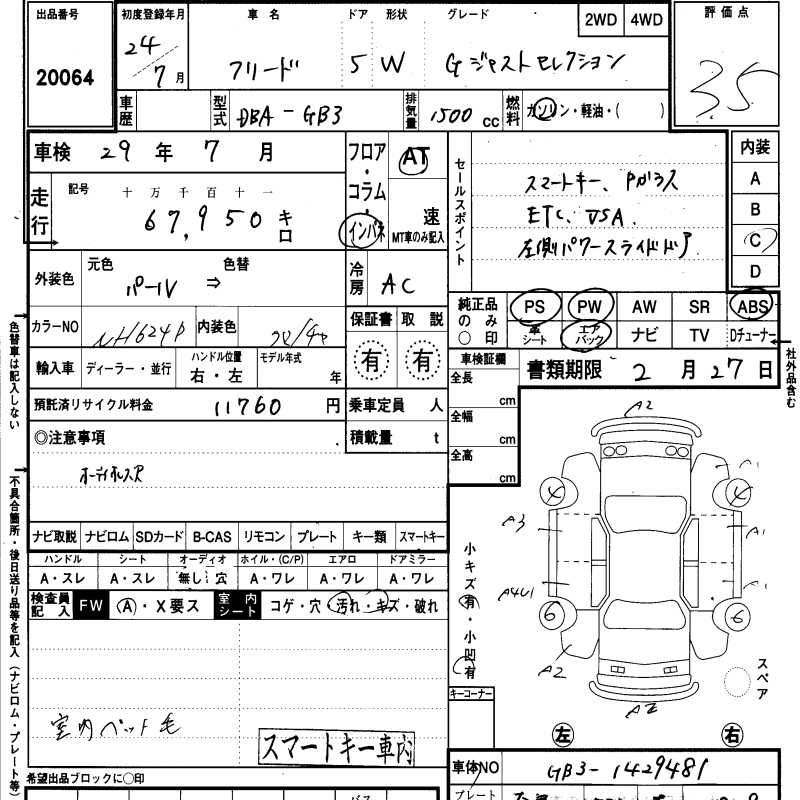 出品番号
20064
初度登録年月
24/7月
車名
フリード
ドア
5
形状
W
グレード
G ジャストセレクション
2WD 4WD
評価点
3.5
車歴
型式
DBA-GB3
排気量
1500 cc
燃料
ガソリン・軽油・( )
車検 29年 7月
走行
記号
十 万 千 百 十 一
67,950 キロ
フロア・コラム・インパネ
AT
速
MT車のみ記入
セールスポイント
スマートキー、Pガラス
ETC、VSA、
左側パワースライドドア
内装
A
B
C
D
外装色
元色
パール
⇒
色替
冷房
AC
カラーNO
NH624P
内装色
保証書
有
取説
有
純正品のみ〇印
PS PW AW SR ABS
革シート エアバック ナビ TV Dチューナー
社外品含む
色替車は記入しない
輸入車
ディーラー・並行
ハンドル位置
右・左
モデル年式
年
車検証欄
全長
cm
全幅
cm
全高
cm
書類期限 2月27日
預託済リサイクル料金
11760 円
乗車定員 人
積載量 t
◎注意事項
オーディオレスR
ナビ取説 ナビロム SDカード B-CAS リモコン プレート キー類 スマートキー
ハンドル シート オーディオ ホイル・(C/P) エアロ ドアミラー
A・スレ A・スレ 無し・穴 A・ワレ A・ワレ A・ワレ
検査員記入 FW A・X要ス
室内シート コゲ・穴・汚れ・キズ・破れ
不具合箇所・後日送り品等を記入(ナビロム・プレート等)
室内ペット毛
スマートキー車内
小キズ有・小凹有
A2
A1
4
4
A3
A1
A4U1
A1
6
6
A2
A2
スペア
キーコーナー
左 右
希望出品ブロックに〇印
車体NO
GB3-1429481
プレート